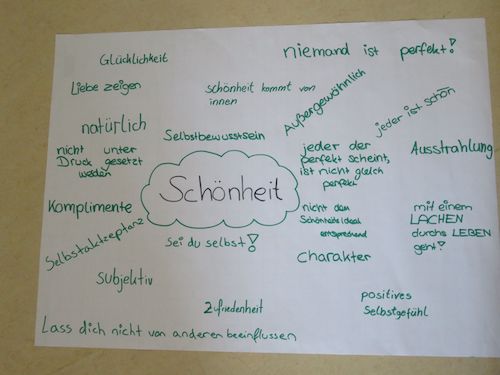 Glücklichkeit
niemand ist perfekt!
Liebe zeigen
schönheit kommt von
innen
Außergewöhnlich
jeder ist schön
natürlich
Selbstbewusstsein
nicht unter
Druck gesetzt
werden
jeder der
perfekt scheint,
ist nicht gleich
perfekt
Ausstrahlung
Schönheit
Komplimente
nicht dem
Schönheitsideal
entsprechend
mit einem
LACHEN
durchs LEBEN
geht!
Selbstakzeptanz
Sei du selbst!
Charakter
subjektiv
Zufriedenheit
positives
Selbstgefühl
Lass dich nicht von anderen beeinflussen